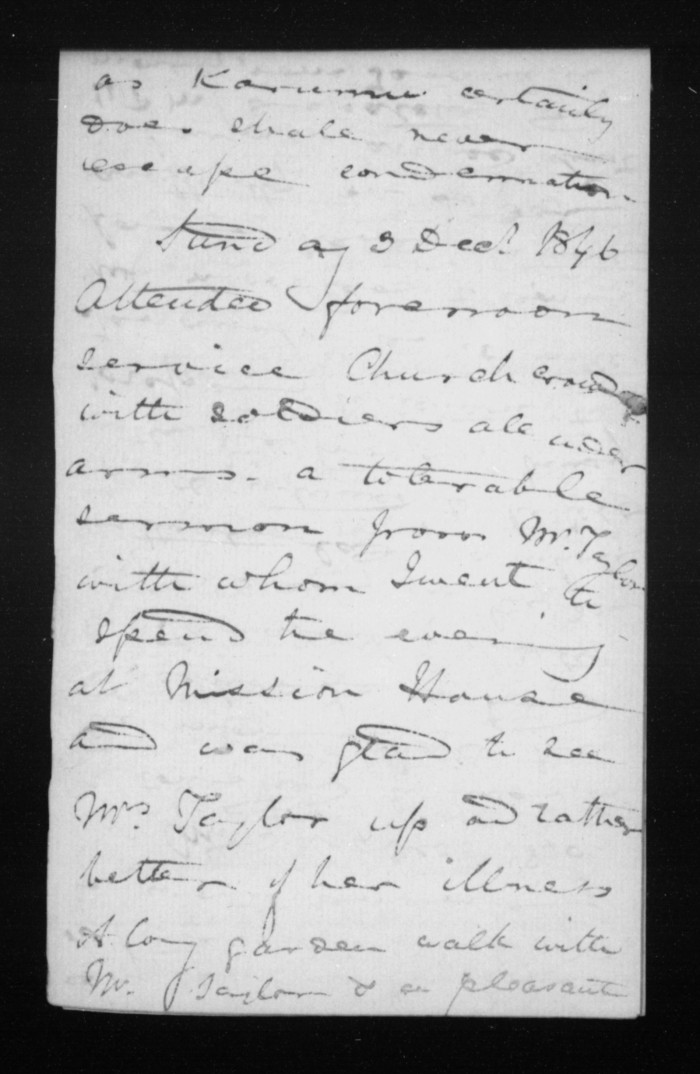 as Karumu certainly
does shale never
escape condemnation
Sunday 3 Decr 1846
Attended forenoon
service Church crowded
with soldiers all under
arms. a tolerable
sermon from Mr. Taylor
with whom I went to
spend the evening
at Mission House
and was glad to see
Mrs Taylor up and rather
better of her illness
A long garden walk with
Mr. Taylor & a pleasant